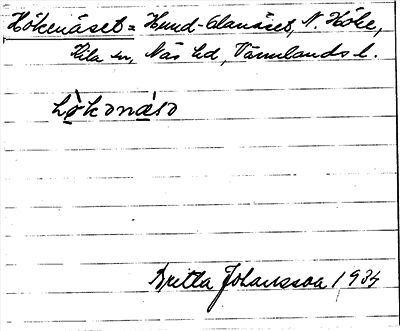 Hökenäset = Hund-Olanäset, N. Höke,
Kila sn, Näs hd, Värmlands l.
hö̀kənä̀sə
Britta Johansson 1934